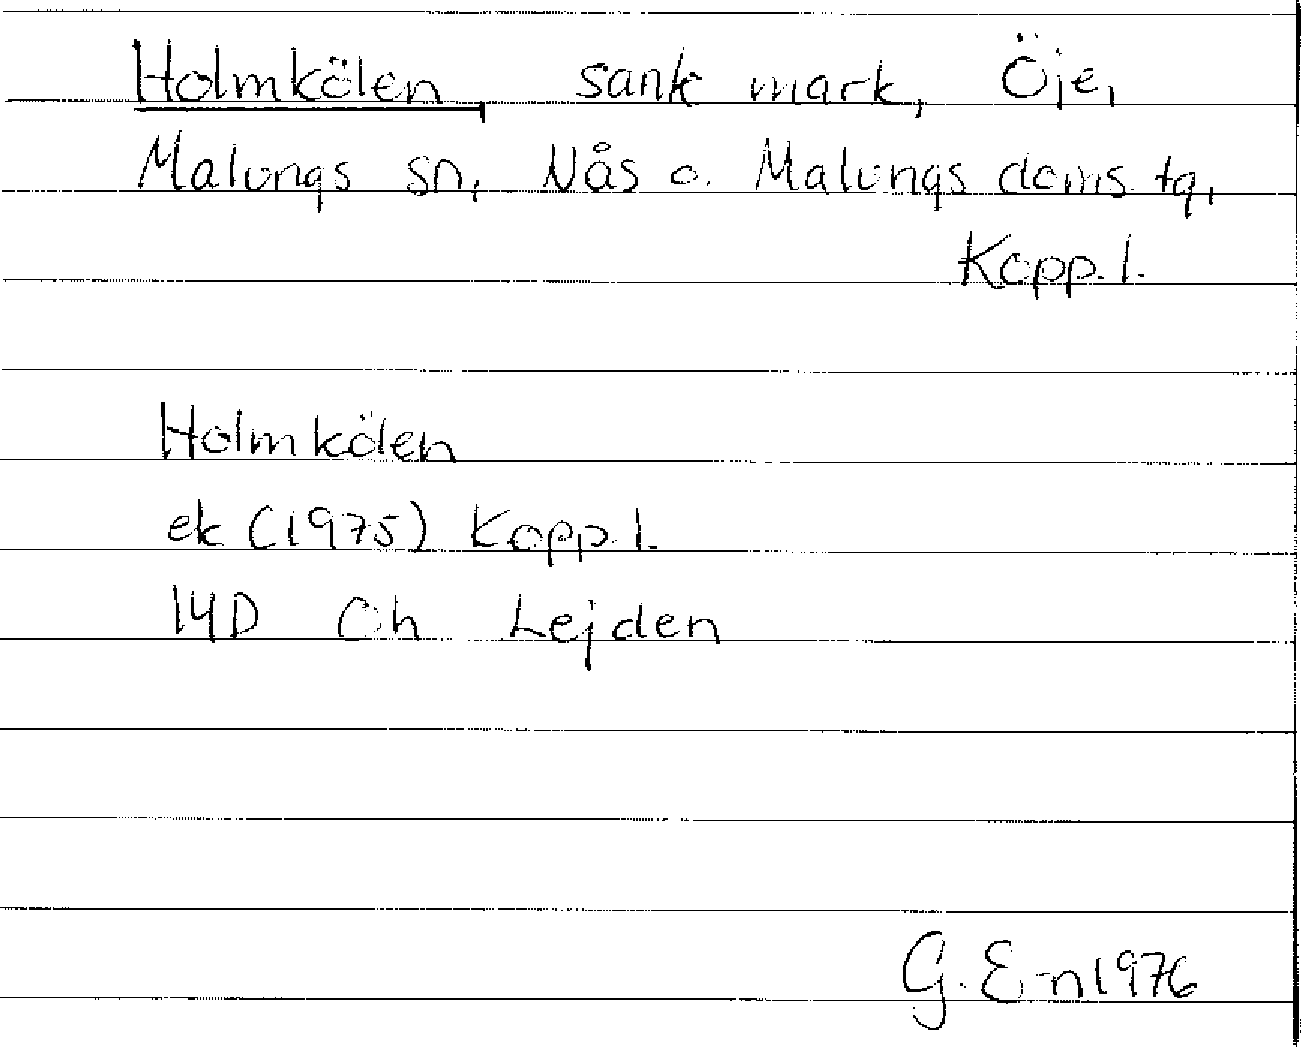 Holmkölen, sank mark, Öje,
Malungs sn, Nås o. Malungs doms. tg,
Kopp. l.
Holmkölen
ek (1975) Kopp. l.
14D 0h Lejden
G. E-n 1976